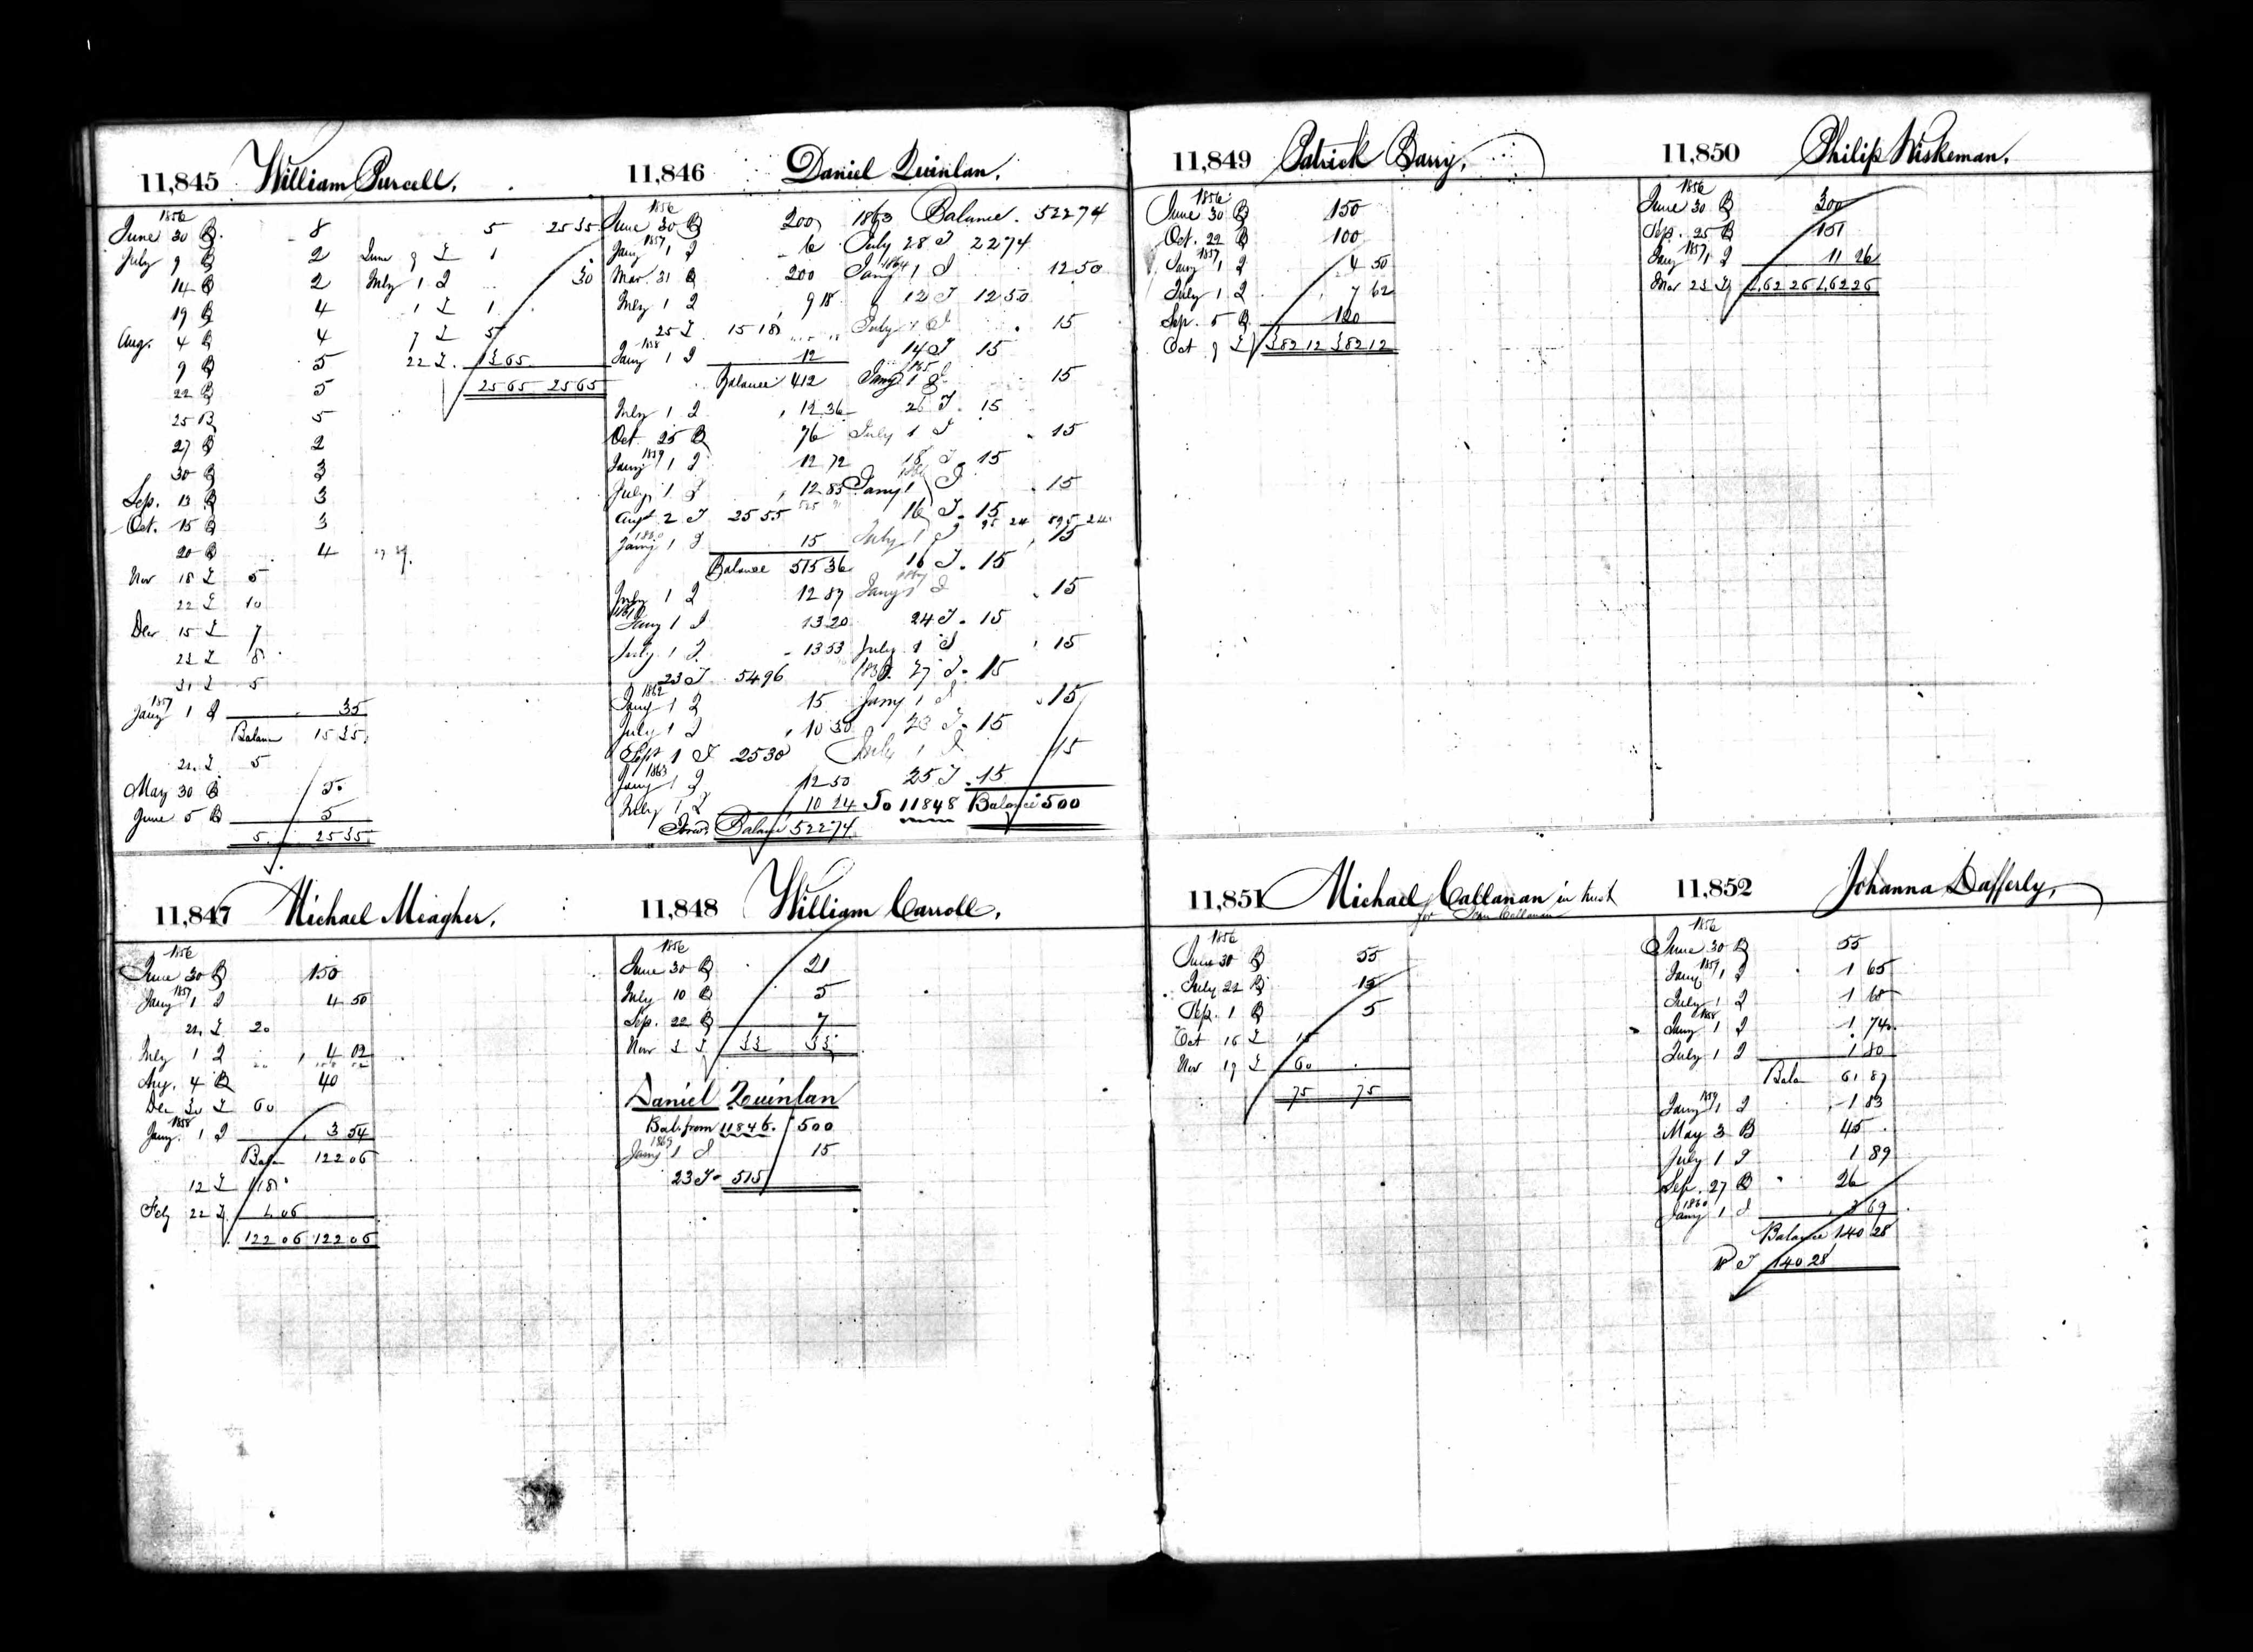 11,845 William Purcell.
1856
June 30 B 8 5 25 35
July 9 B 2 June 9 I 1
14 B 2 July 1 I 30
19 B 4 1 I 1
Aug. 4 B 4 7 I 5
9 B 5 22 I 18 65
22 B 5 25 65 25 65
25 B 5
27 B 2
30 B 3
Sep. 13 B 3
Oct. 15 B 3
20 B 4
Nov 18 I 5
22 I 10
Dec 15 I 7
23 I 8
31 I 5
1857
Jany 1 I 35
Balan 15 35
21 I 5
May 30 B 5
June 5 B 5
5 25 35
11,846 Daniel Quinlan.
1856
June 30 B 200
1857
Jany 1 I 6
Mar. 31 B 200
July 1 I 9 18
25 I 15 18
1858
Jany 1 I 12
Balance 412
July 1 I 12 36
Oct. 25 B 76
1859
Jany 1 I 12 72
July 1 I 12 83
Augt 2 I 25 55
1860
Jany 1 I 15
Balance 515 36
July 1 I 12 87
1861
Jany 1 I 13 20
July 1 I 13 53
23 I 54 96
1862
Jany 1 I 15
July 1 I 10 30
Sept 1 I 25 30
1863
Jany 1 I 12 50
July 1 I 10 24
Forwd Balance 522 74
1863 Balance. 522 74
July 28 I 22 74
1864
Jany 1 I 12 50
12 I 12 50
July 1 I 15
14 I 15
1865
Jany 1 I 15
26 I 15
July 1 I 15
18 I 15
Jany 1 I 15
16 I 15
July 1 I 15
16 I 15
1867
Jany 1 I 15
24 I 15
July 1 I 15
27 I 15
Jany 1 I 15
23 I 15
July 1 I 15
25 I 15
To 11848 Balance 500
11,847 Michael Meagher.
1856
June 30 B 150
1857
Jany 1 I 4 50
21 I 20
July 1 I 4 02
Aug. 4 B 40
Dec 30 I 60
1858
Jany. 1 I 3 54
Balan 122 06
12 I 118
Feby 22 I 4 06
122 06 122 06
11,848 William Carroll.
1856
June 30 B 21
July 10 B 5
Sep. 22 B 7
Nov 3 I 33 33
Daniel Quinlan
Bal. from 11846. 500
1869
Jany 1 I 15
23 I 515
11,849 Patrick Barry.
1856
June 30 B 150
Oct. 22 B 100
1857
Jany 1 I 4 50
July 1 I 7 62
Sep. 5 B 120
Oct 9 I 382 12 382 12
11,850 Philip Wiskeman.
1856
June 30 B 300
Sep. 25 B 151
1857
Jany 1 I 11 26
Mar 23 I 462 26 462 26
11,851 Michael Callanan in trust
for Callanan
1856
June 30 B 55
July 22 B 15
Sep. 1 B 5
Oct 16 I 15
Nov 19 I 60
75 75
11,852 Johanna Dafferly,
1856
June 30 B 55
1857
Jany 1 I 1 65
July 1 I 1 68
1858
Jany 1 I 1 74
July 1 I 1 80
Balan 61 87
1859
Jany 1 I 1 83
May 3 B 45
July 1 I 1 89
Sep. 27 B 26
1860
Jany 1 I 3 69
Balance 140 28
18 I 140 28